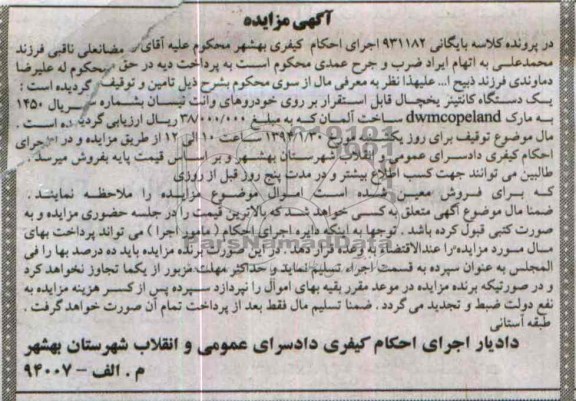 آگهی مزایده
در پرونده کلاسه بایگانی ۹۳۱۱۸۲ اجرای احکام کیفری بهشهر محکوم علیه آقای رمضانعلی ناقبی فرزند
محمدعلی به اتهام ایراد ضرب و جرح عمدی محکوم است به پرداخت دیه در حق محکوم له علیرضا
دماوندی فرزند ذبیح ا... علیهذا نظر به معرفی مال از سوی محکوم بشرح ذیل تامین و توقیف گردیده است :
یک دستگاه کانتینر یخچال قابل استقرار بر روی خودروهای وانت نیسان بشماره سریال ۱۴۵۰
به مارک dwmcopeland ساخت آلمان که به مبلغ ۳۸/۰۰۰/۰۰۰ ریال ارزیابی گردیده است .
مال موضوع توقیف برای روز ۱۳۹۴/۱/۳ ساعت ۱۰ الی ۱۲ از طریق مزایده و در اجرای
احکام کیفری دادسرای عمومی و انقلاب شهرستان بهشهر و بر اساس قیمت پایه بفروش میرسد .
طالبین می توانند جهت کسب اطلاع بیشتر و در مدت پنج روز قبل از روزی
که برای فروش معین شده است اموال موضوع مزایده را ملاحظه نمایند .
ضمنا مال موضوع آگهی متعلق به کسی خواهد شد که بالاترین قیمت را در جلسه حضوری مزایده و به
صورت کتبی قبول کرده باشد . توجها به اینکه دایره اجرای احکام ( مامور اجرا ) می تواند پرداخت بهای
مال مورد مزایده را عندالاقتضاء به وعده قرار دهد . در این صورت برنده مزایده باید ده درصد بها را فی
المجلس به عنوان سپرده به قسمت اجراء تسلیم نماید و حداکثر مهلت مزبور از یکماه تجاوز نخواهد کرد
و در صورتیکه برنده مزایده در موعد مقرر بقیه بهای اموال را نپردازد سپرده پس از کسر هزینه مزایده به
نفع دولت ضبط و تجدید می گردد . ضمنا تسلیم مال فقط بعد از پرداخت تمام آن صورت خواهد گرفت .
طبقه آستانی
دادیار اجرای احکام کیفری دادسرای عمومی و انقلاب شهرستان بهشهر
م . الف - ۹۴۰۰۷